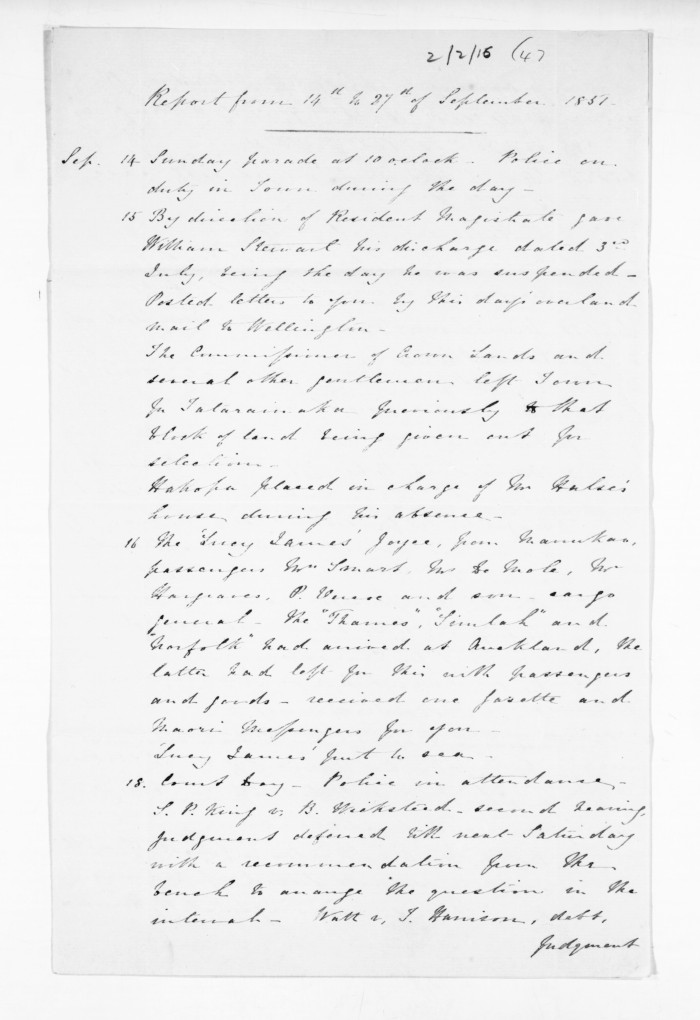 2/2/15 (47
Report from 14th to 27th of September 1851
Sep. 14 Sunday parade at 10 o'clock - Police on
duty in Town during the day -
15 By direction of Resident Magistrate gave
William Stewart his discharge dated 3rd
July, being the day he was suspended -
Posted letters to you by this day's overland
mail to Wellington -
The Commissioner of Crown Lands and
several other gentlemen left Town
for Tataraimaka previously to that
block of land being given out for
selection -
Hakopa placed in charge of Mr Halse's
house during his absence -
16 The "Lucy James" Joyce, from Manukau,
passengers Mrs Smart, Mr De Mole, Mr
Hargraves, P. and son - cargo
general - The "Thames", "Simlah" and
"Norfolk" had arrived at Auckland, the
latter had left for this with passengers
and goods - received one Gazette and
Maori Messengers for you -
"Lucy James" put to sea -
18. Court Day - Police in attendance -
S. P. King v. B. Wicksteed - second hearing,
judgment deferred till next Saturday
with a recommendation from the
bench to arrange the question in the
interval - Watt v. T. Harrison, debt,
Judgment